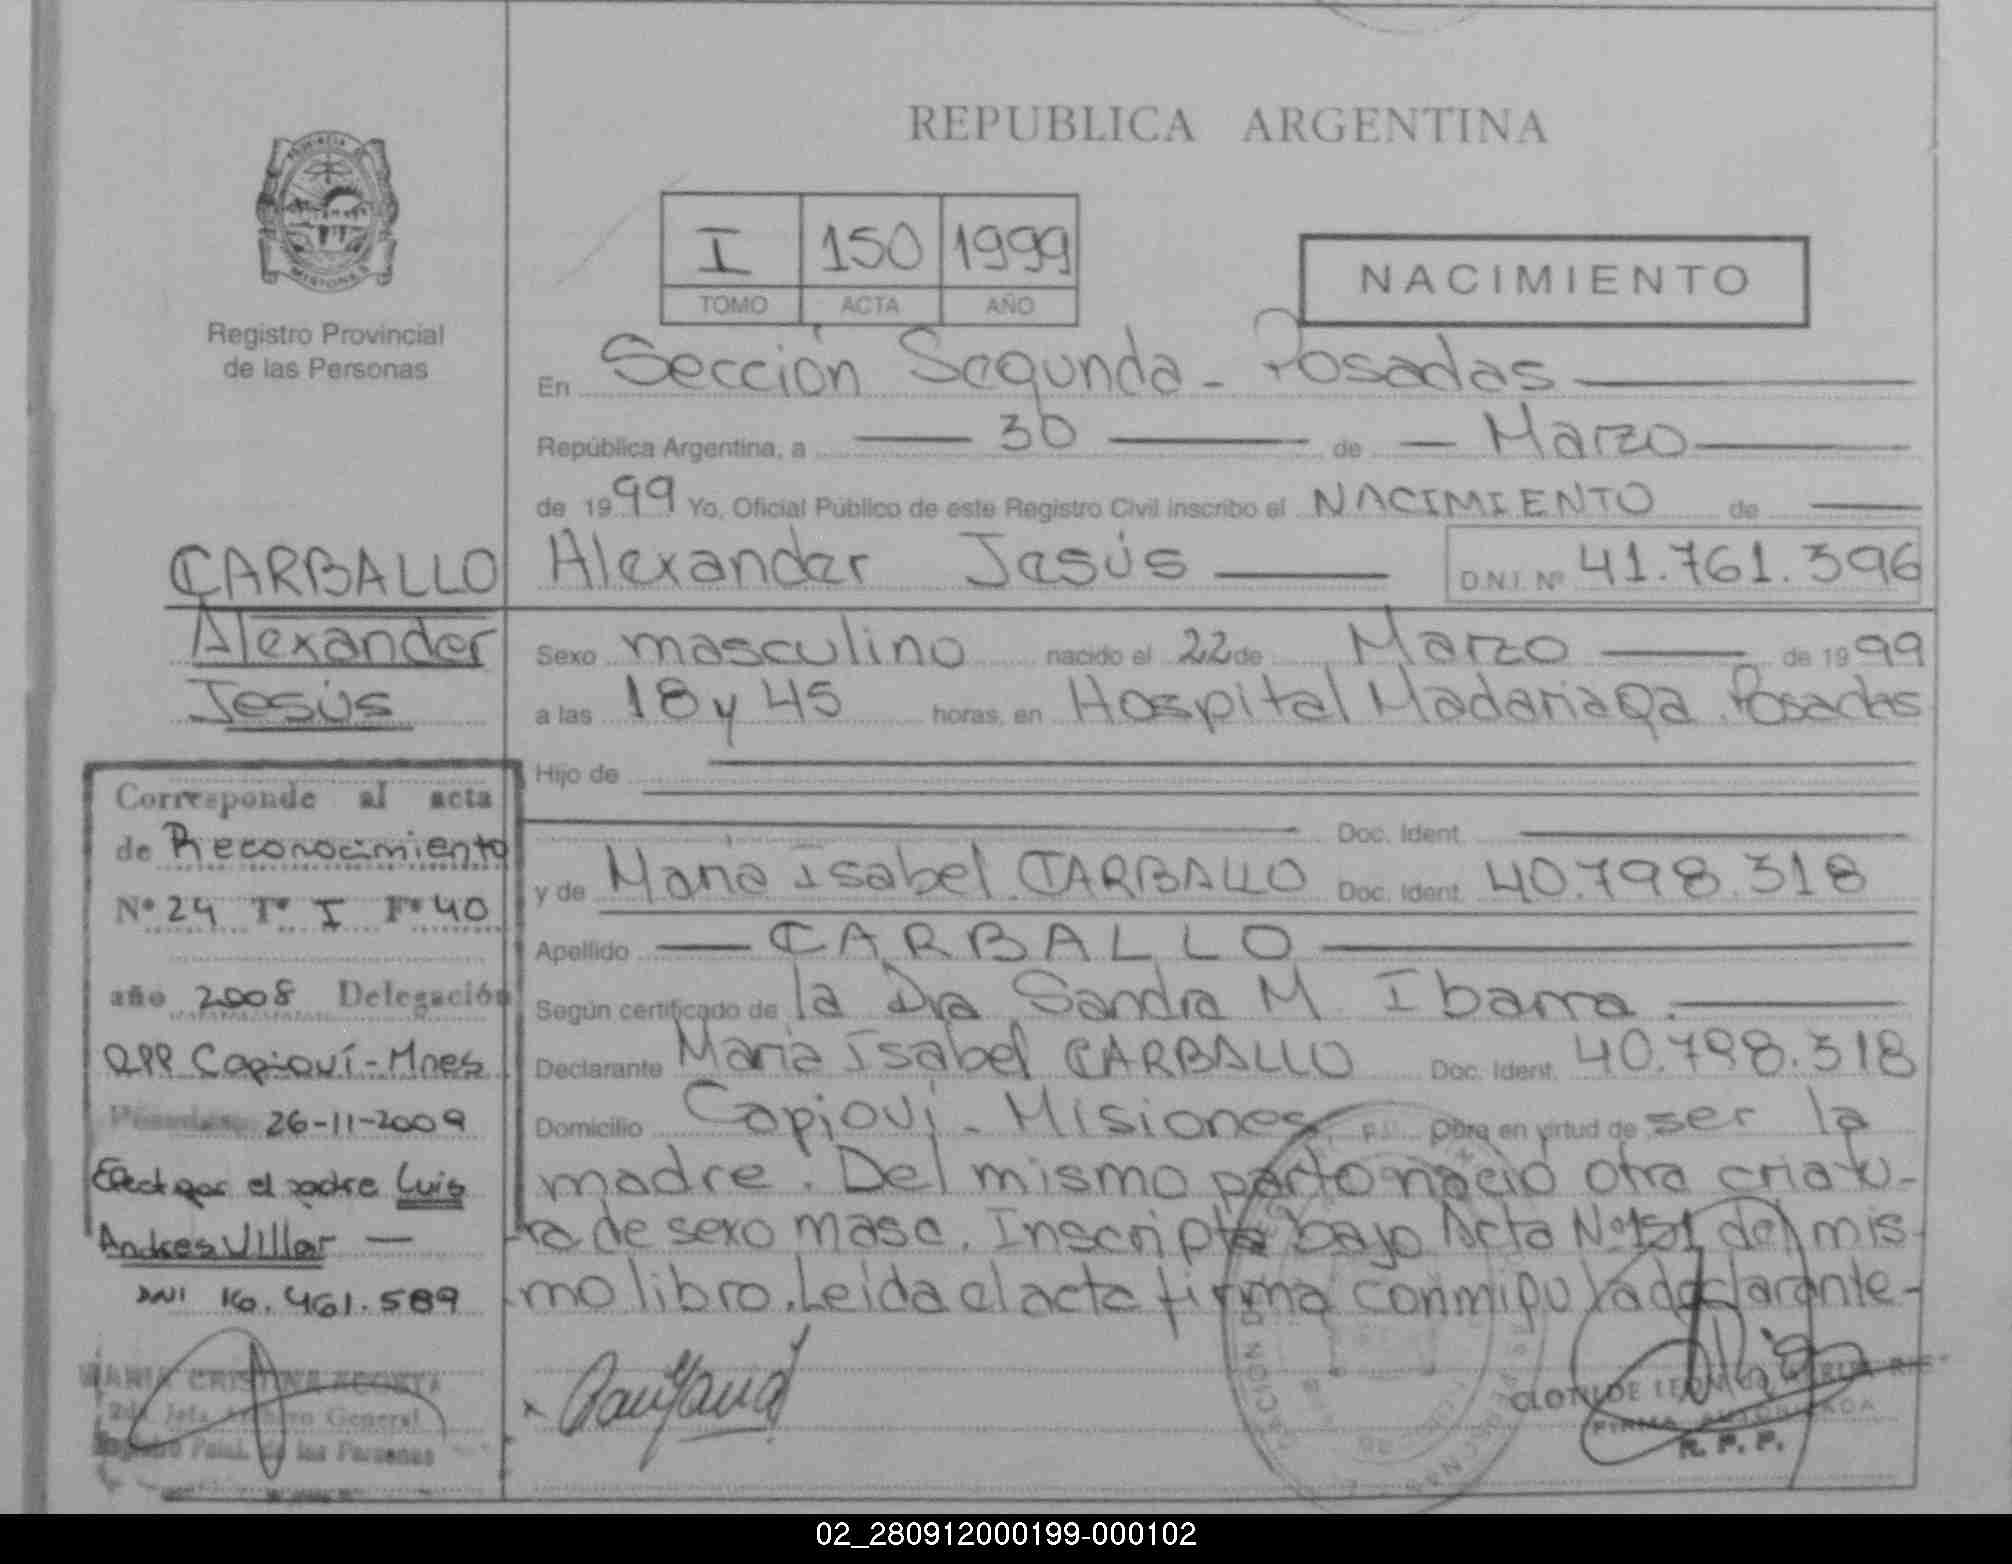 REPUBLICA ARGENTINA
PROVINCIA D
MISIONES
Registro Provincial
de las Personas
I 150 1999
TOMO ACTA AÑO
NACIMIENTO
En Sección Segunda - Posadas
República Argentina, a 30 de Marzo
de 1999 Yo, Oficial Público de este Registro Civil inscribo el NACIMIENTO de
Alexander Jesús D.N.I. Nº 41.761.396
Sexo masculino nacido el 22 de Marzo de 1999
a las 18 y 45 horas, en Hospital Madariaga. Posadas
Hijo de
Doc. Ident.
y de Maria Isabel CARBALLO Doc. Ident. 40.798.318
Apellido CARBALLO
Según certificado de la Dra Sandra M Ibarra.
Declarante Maria Isabel CARBALLO Doc. Ident. 40.798.318
Domicilio Capioví - Misiones Obra en virtud de ser la
madre. Del mismo parto nació otra criatu-
ra de sexo masc. Inscripta bajo Acta Nº 151 del mis-
mo libro. Leída el acta firma conmigo la declarante-
CARBALLO
Alexander
Jesús
Corresponde al acta
de Reconocimiento
Nº 24 Tº I Fº 40
año 2008 Delegación
RPP Capioví - Mnes
Posadas, 26-11-2009
Efect por el padre Luis
Andres Villar —
DNI 16.461.589
MARIA CRISTINA ACOSTA
2da. Jefa Archivo General
Registro Pcial. de las Personas
CLOTILDE
FIRMA AUTORIZADA
R. P. P.
02_280912000199-000102